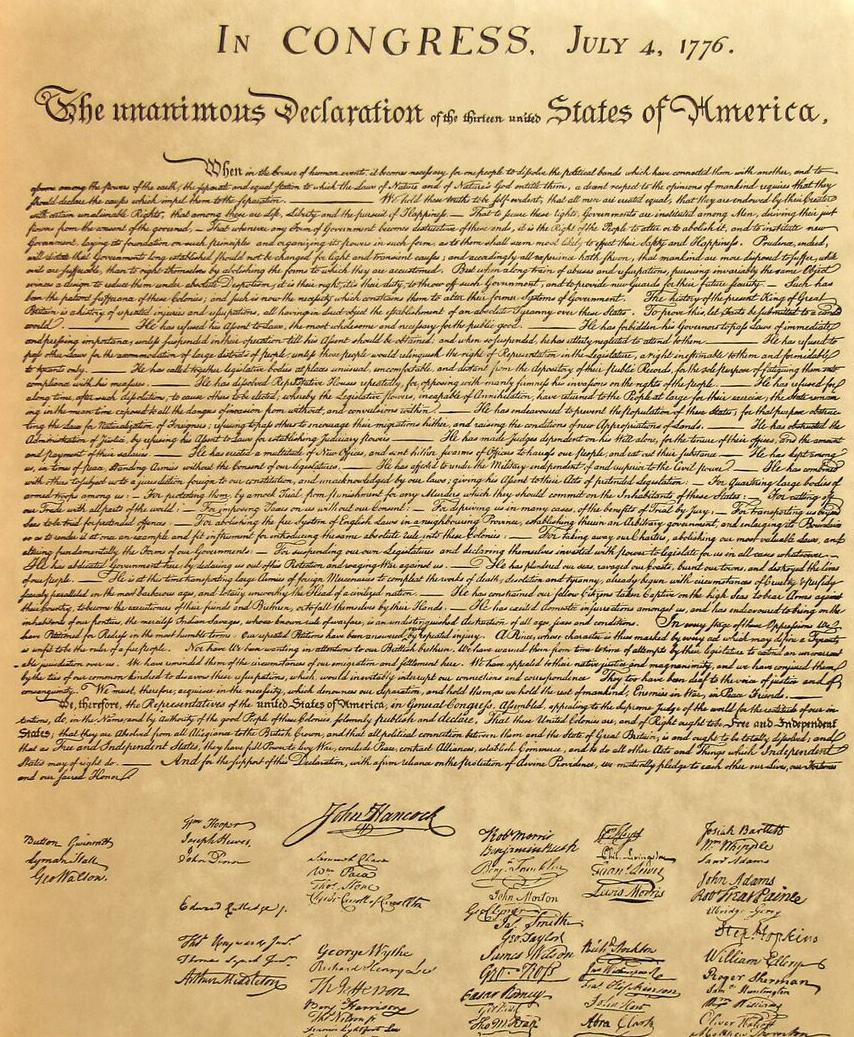 In CONGRESS, July 4, 1776.
The unanimous Declaration of the thirteen united States of America,
When in the Course of human events, it becomes necessary for one people to dissolve the political bands which have connected them with another, and to
assume among the powers of the earth, the separate and equal station to which the Laws of Nature and of Nature's God entitle them, a decent respect to the opinions of mankind requires that they
should declare the causes which impel them to the separation. — We hold these truths to be self-evident, that all men are created equal, that they are endowed by their Creator
with certain unalienable Rights, that among these are Life, Liberty and the pursuit of Happiness. — That to secure these rights, Governments are instituted among Men, deriving their just
powers from the consent of the governed, — That whenever any Form of Government becomes destructive of these ends, it is the Right of the People to alter or to abolish it, and to institute new
Government, laying its foundation on such principles and organizing its powers in such form, as to them shall seem most likely to effect their Safety and Happiness. Prudence, indeed,
will dictate that Governments long established should not be changed for light and transient causes; and accordingly all experience hath shewn, that mankind are more disposed to suffer, while
evils are sufferable, than to right themselves by abolishing the forms to which they are accustomed. But when a long train of abuses and usurpations, pursuing invariably the same Object
evinces a design to reduce them under absolute Despotism, it is their right, it is their duty, to throw off such Government, and to provide new Guards for their future security. — Such has
been the patient sufferance of these Colonies; and such is now the necessity which constrains them to alter their former Systems of Government. The history of the present King of Great
Britain is a history of repeated injuries and usurpations, all having in direct object the establishment of an absolute Tyranny over these States. To prove this, let Facts be submitted to a candid
world. — He has refused his Assent to Laws, the most wholesome and necessary for the public good. — He has forbidden his Governors to pass Laws of immediate
and pressing importance, unless suspended in their operation till his Assent should be obtained; and when so suspended, he has utterly neglected to attend to them. — He has refused to
pass other Laws for the accommodation of large districts of people, unless those people would relinquish the right of Representation in the Legislature, a right inestimable to them and formidable
to tyrants only. — He has called together legislative bodies at places unusual, uncomfortable, and distant from the depository of their Public Records, for the sole purpose of fatiguing them into
compliance with his measures. — He has dissolved Representative Houses repeatedly, for opposing with manly firmness his invasions on the rights of the people. — He has refused for
a long time, after such dissolutions, to cause others to be elected; whereby the Legislative powers, incapable of Annihilation, have returned to the People at large for their exercise; the State remain
ing in the mean time exposed to all the dangers of invasion from without, and convulsions within. — He has endeavoured to prevent the population of these States; for that purpose obstruc
ting the Laws for Naturalization of Foreigners; refusing to pass others to encourage their migrations hither, and raising the conditions of new Appropriations of Lands. — He has obstructed the
Administration of Justice, by refusing his Assent to Laws for establishing Judiciary powers. — He has made Judges dependent on his Will alone, for the tenure of their offices, and the amount
and payment of their salaries. — He has erected a multitude of New Offices, and sent hither swarms of Officers to harrass our people, and eat out their substance. — He has kept among
us, in times of peace, Standing Armies without the Consent of our legislatures. — He has affected to render the Military independent of and superior to the Civil power. — He has combined
with others to subject us to a jurisdiction foreign to our constitution, and unacknowledged by our laws; giving his Assent to their Acts of pretended Legislation: — For Quartering large bodies of
armed troops among us: — For protecting them, by a mock Trial, from punishment for any Murders which they should commit on the Inhabitants of these States: — For cutting off
our Trade with all parts of the world: — For imposing Taxes on us without our Consent: — For depriving us in many cases, of the benefits of Trial by Jury: — For transporting us beyond
Seas to be tried for pretended offences: — For abolishing the free System of English Laws in a neighbouring Province, establishing therein an Arbitrary government, and enlarging its Boundaries
so as to render it at once an example and fit instrument for introducing the same absolute rule into these Colonies: — For taking away our Charters, abolishing our most valuable Laws, and
altering fundamentally the Forms of our Governments: — For suspending our own Legislatures, and declaring themselves invested with power to legislate for us in all cases whatsoever. —
He has abdicated Government here, by declaring us out of his Protection and waging War against us. — He has plundered our seas, ravaged our Coasts, burnt our towns, and destroyed the lives
of our people. — He is at this time transporting large Armies of foreign Mercenaries to compleat the works of death, desolation and tyranny, already begun with circumstances of Cruelty & perfidy
scarcely paralleled in the most barbarous ages, and totally unworthy the Head of a civilized nation. — He has constrained our fellow Citizens taken Captive on the high Seas to bear Arms against
their Country, to become the executioners of their friends and Brethren, or to fall themselves by their Hands. — He has excited domestic insurrections amongst us, and has endeavoured to bring on the
inhabitants of our frontiers, the merciless Indian Savages, whose known rule of warfare, is an undistinguished destruction of all ages, sexes and conditions. In every stage of these Oppressions We
have Petitioned for Redress in the most humble terms: Our repeated Petitions have been answered only by repeated injury. A Prince, whose character is thus marked by every act which may define a Tyrant,
is unfit to be the ruler of a free people. Nor have We been wanting in attentions to our Brittish brethren. We have warned them from time to time of attempts by their legislature to extend an unwarrant
able jurisdiction over us. We have reminded them of the circumstances of our emigration and settlement here. We have appealed to their native justice and magnanimity, and we have conjured them
by the ties of our common kindred to disavow these usurpations, which, would inevitably interrupt our connections and correspondence. They too have been deaf to the voice of justice and of
consanguinity. We must, therefore, acquiesce in the necessity, which denounces our Separation, and hold them, as we hold the rest of mankind, Enemies in War, in Peace Friends. —
We, therefore, the Representatives of the united States of America, in General Congress, Assembled, appealing to the Supreme Judge of the world for the rectitude of our in
tentions, do, in the Name, and by Authority of the good People of these Colonies, solemnly publish and declare, That these United Colonies are, and of Right ought to be Free and Independent
States; that they are Absolved from all Allegiance to the British Crown, and that all political connection between them and the State of Great Britain, is and ought to be totally dissolved; and
that as Free and Independent States, they have full Power to levy War, conclude Peace, contract Alliances, establish Commerce, and to do all other Acts and Things which Independent
States may of right do. — And for the support of this Declaration, with a firm reliance on the protection of divine Providence, we mutually pledge to each other our Lives, our Fortunes
and our sacred Honor.
John Hancock
Button Gwinnett
Lyman Hall
Geo Walton.
Wm Hooper
Joseph Hewes,
John Penn
Edward Rutledge /.
Thos Heyward Junr.
Thomas Lynch Junr.
Arthur Middleton
Samuel Chase
Wm Paca
Thos Stone
Charles Carroll of Carrollton
George Wythe
Richard Henry Lee
Th Jefferson
Benj Harrison
Thos Nelson jr.
Francis Lightfoot Lee
Robt Morris
Benjamin Rush
Benj. Franklin
John Morton
Geo Clymer
Jas. Smith
Geo. Taylor
James Wilson
Geo. Ross
Caesar Rodney
Geo Read
Tho M:Kean
Wm Floyd
Phil. Livingston
Frans. Lewis
Lewis Morris
Richd. Stockton
Jno Witherspoon
Fras. Hopkinson
John Hart
Abra Clark
Josiah Bartlett
Wm Whipple
Saml Adams
John Adams
Robt Treat Paine
Elbridge Gerry
Step. Hopkins
William Ellery
Roger Sherman
Saml Huntington
Wm Williams
Oliver Wolcott
Matthew Thornton